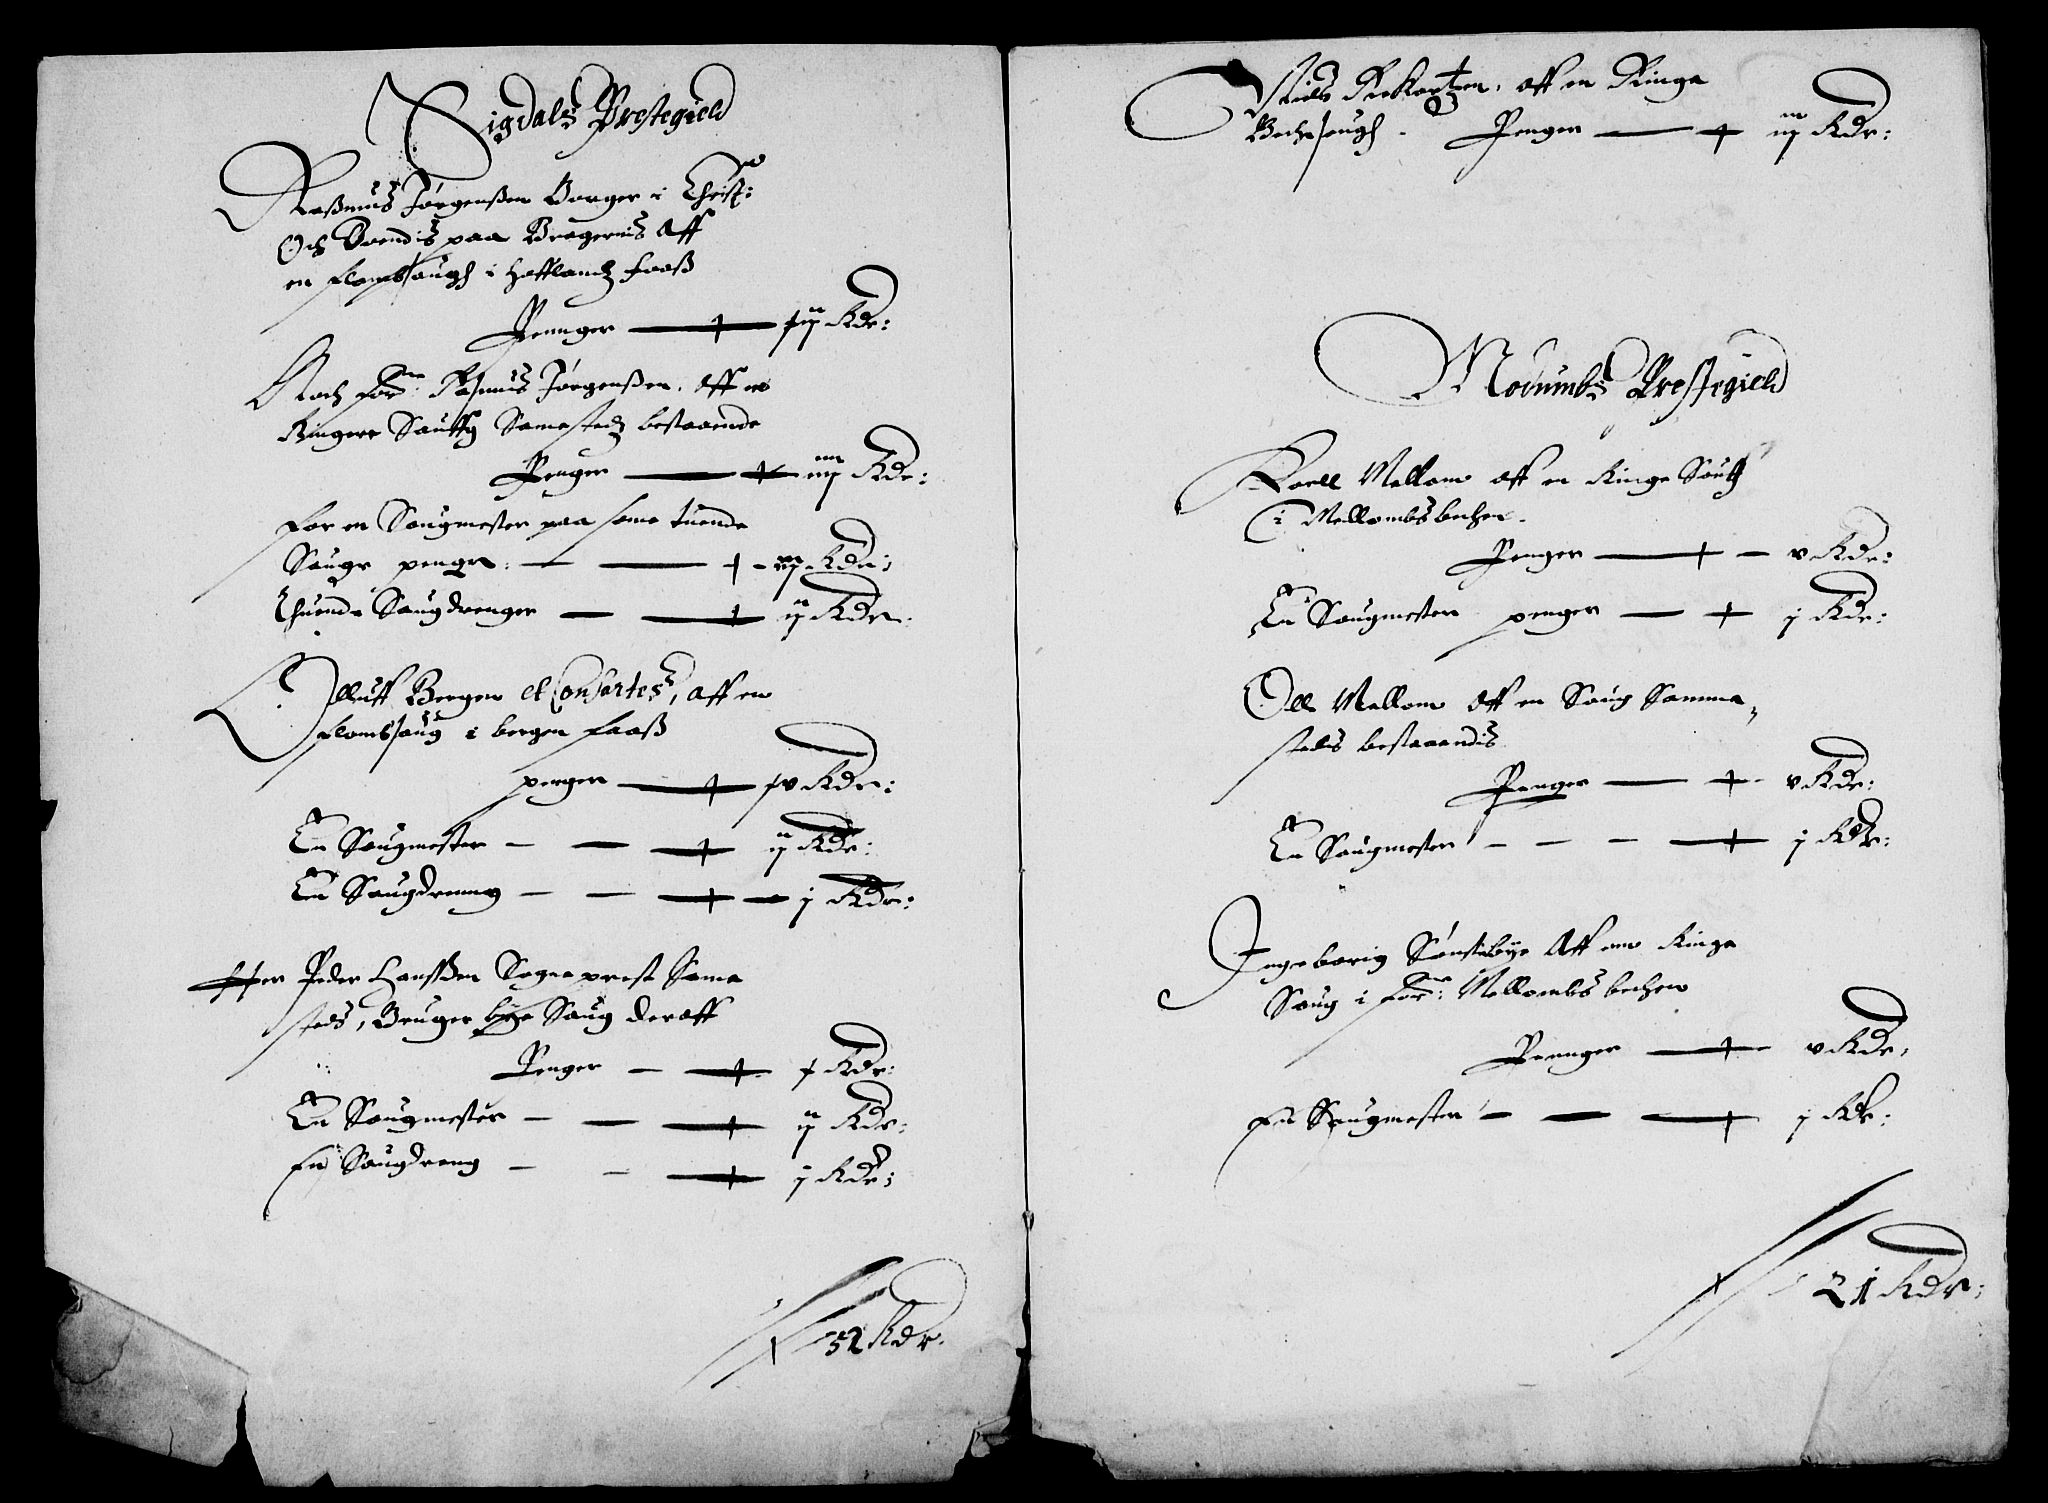 Sigdals Prestegield
Rassmus Jørgenssen Borger i Christ:
Och Boendis paa Bragernis Aff
en flombsaugh i Hafflandtz faaß
Pennger xij Rdr:
Noch forne: Rasmus Jørgenssen, Aff en
Ringere Saugh Samestedtz bestaaende
Penger iiij Rdr:
For en Saugmester paa same tuende
Sauge penge iij Rdr:
Thuende Saugdrenger ij Rdr:
Olluff Bergen et Consortes, aff en
flombsaug i bergen faaß
penger xv Rdr:
En Saugmester ij Rdr:
En Saugdreng j Rdr:
Her Peder Hanssøn Sogneprest Same
steds, Bruger bye Saug deraff
Penger x Rdr:
En Saugmester ij Rdr:
En Saugdreng j Rdr:
52 Rdr.
Niels aff en Ringe
Bechesaugh Penger iij Rdr:
Modumbs Prestegield
Boell Mellom aff en Ringe Saug
i Mellombsbechen
Penger v Rdr:
En Saugmester penger j Rdr:
Oll Mellom Aff en Saug Samme
steds bestaaendis
Penger v Rdr:
En Saugmester j Rdr:
Ingeborig Sønstebye Aff enn Ringe
Saug i forne: Mellombs bechen
Pennger v Rdr:
En Saugmester j Rdr:
21 Rdr: